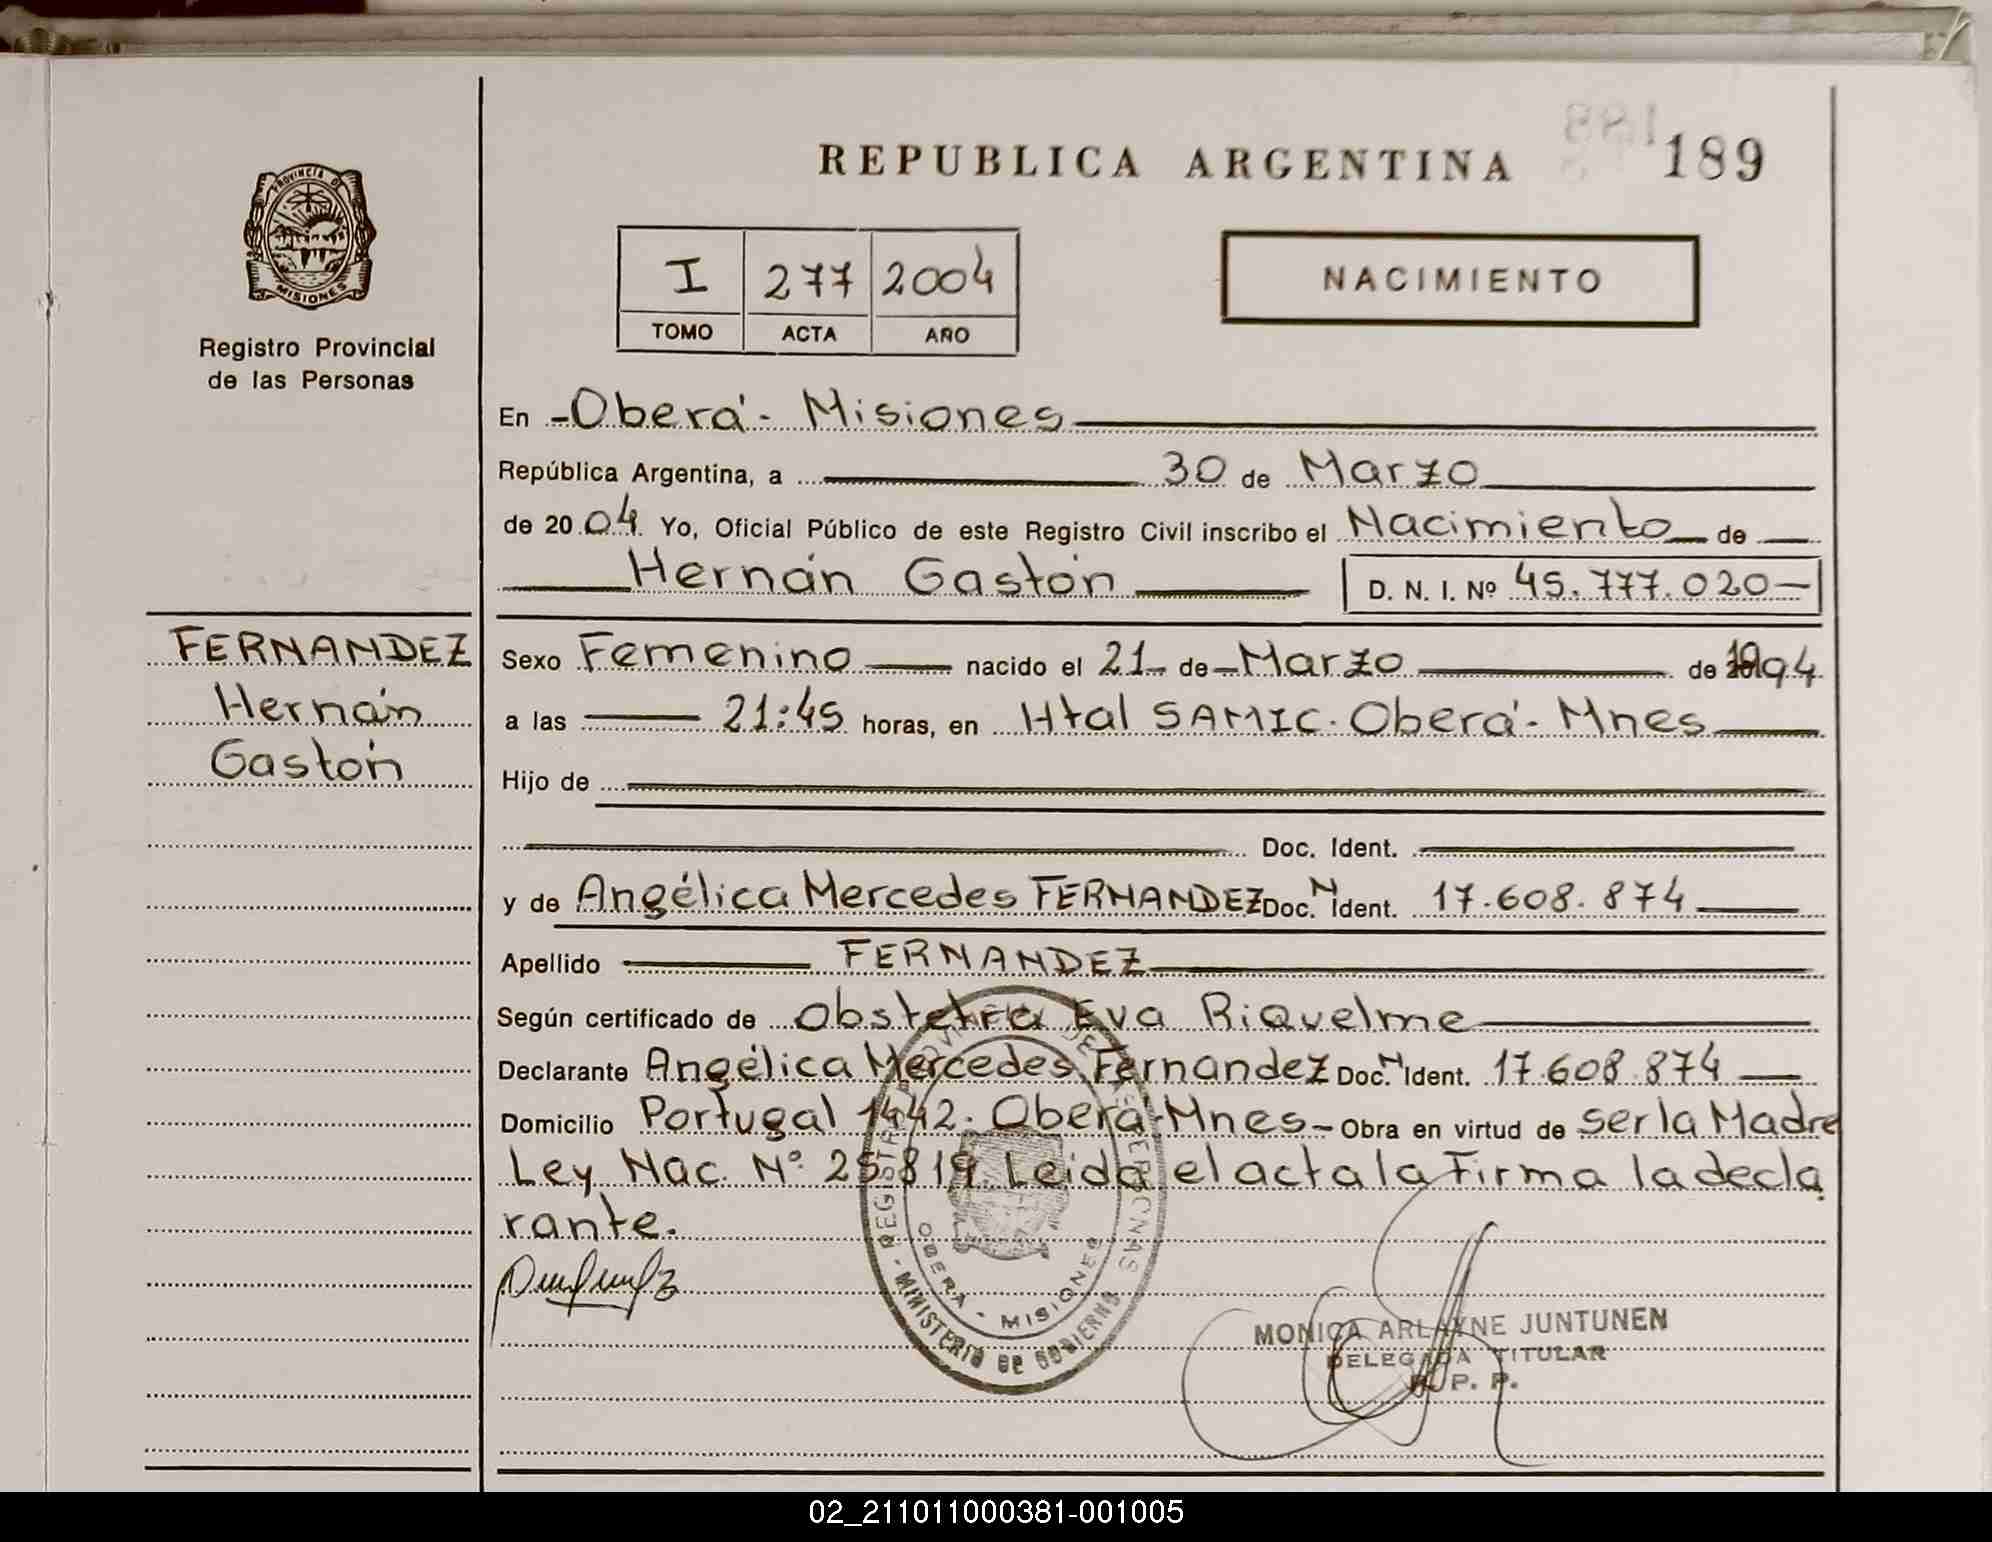 188
REPUBLICA ARGENTINA 189
PROVINCIA DE
MISIONES
Registro Provincial
de las Personas
I 277 2004
TOMO ACTA AÑO
NACIMIENTO
En -Oberá- Misiones
República Argentina, a 30 de Marzo
de 20 04. Yo, Oficial Público de este Registro Civil inscribo el Nacimiento de
Hernán Gastón D. N. I. Nº 45.777.020-
FERNANDEZ
Hernán
Gastón
Sexo Femenino nacido el 21- de - Marzo de 1994
a las 21:45 horas, en Htal SAMIC. Oberá- Mnes
Hijo de
Doc. Ident.
y de Angélica Mercedes FERNANDEZ Doc. N Ident. 17.608.874
Apellido FERNANDEZ
Según certificado de Obstetra Eva Riquelme
Declarante Angélica Mercedes Fernandez Doc. N Ident. 17.608.874
Domicilio Portugal 1442. Oberá-Mnes- Obra en virtud de ser la Madre
Ley Nac. Nº 25.819 Leida el acta la Firma la decla
rante.
OBERA - MISIONES
MINISTERIO DE GOBIERNO
MONICA ARLAYNE JUNTUNEN
DELEGADA TITULAR
R. P. P.
02_211011000381-001005